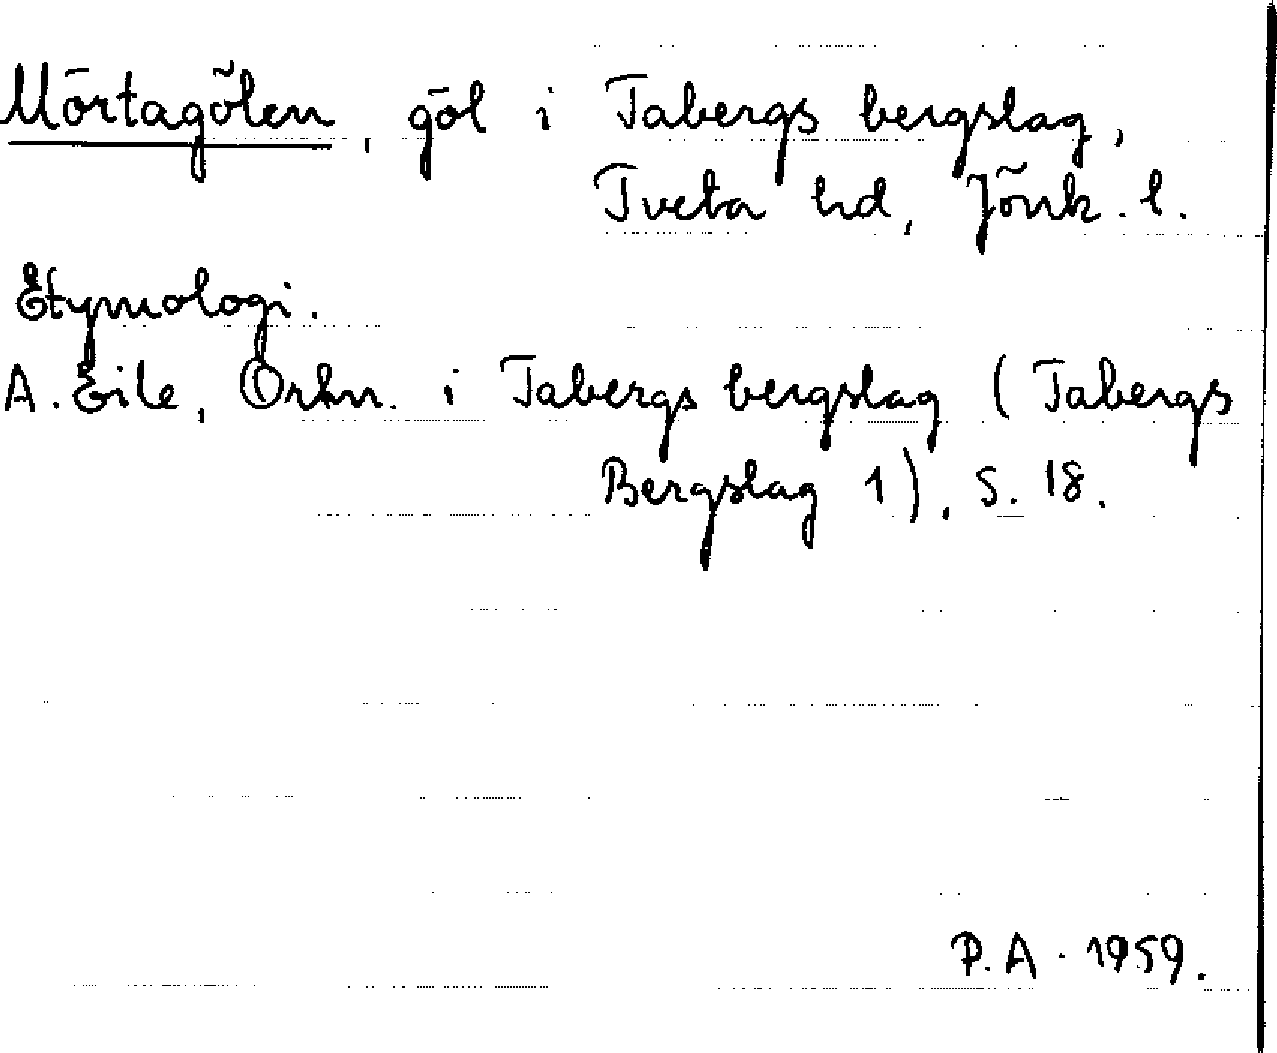 Mörtagölen, göl i Tabergs bergslag,
Tveta hd, Jönk. l.
Etymologi.
A. Eile, Ortn. i Tabergs bergslag (Tabergs
Bergslag 1), s. 18.
P.A. 1959.